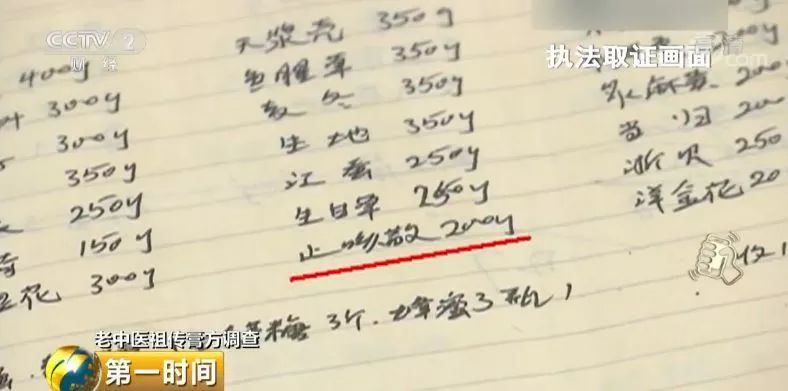 CCTV 2
财经
执法取证画面
天浆壳 350g
鱼腥草 350g
款冬 350g
生地 350g
江蚕 250g
生甘草 250g
止咳散 200g
400g
300g
300g
350g
250g
150g
花 300g
200
当归 200
浙贝 250
洋金花 20
糖 3个.蜂蜜3瓶
老中医祖传膏方调查
第一时间